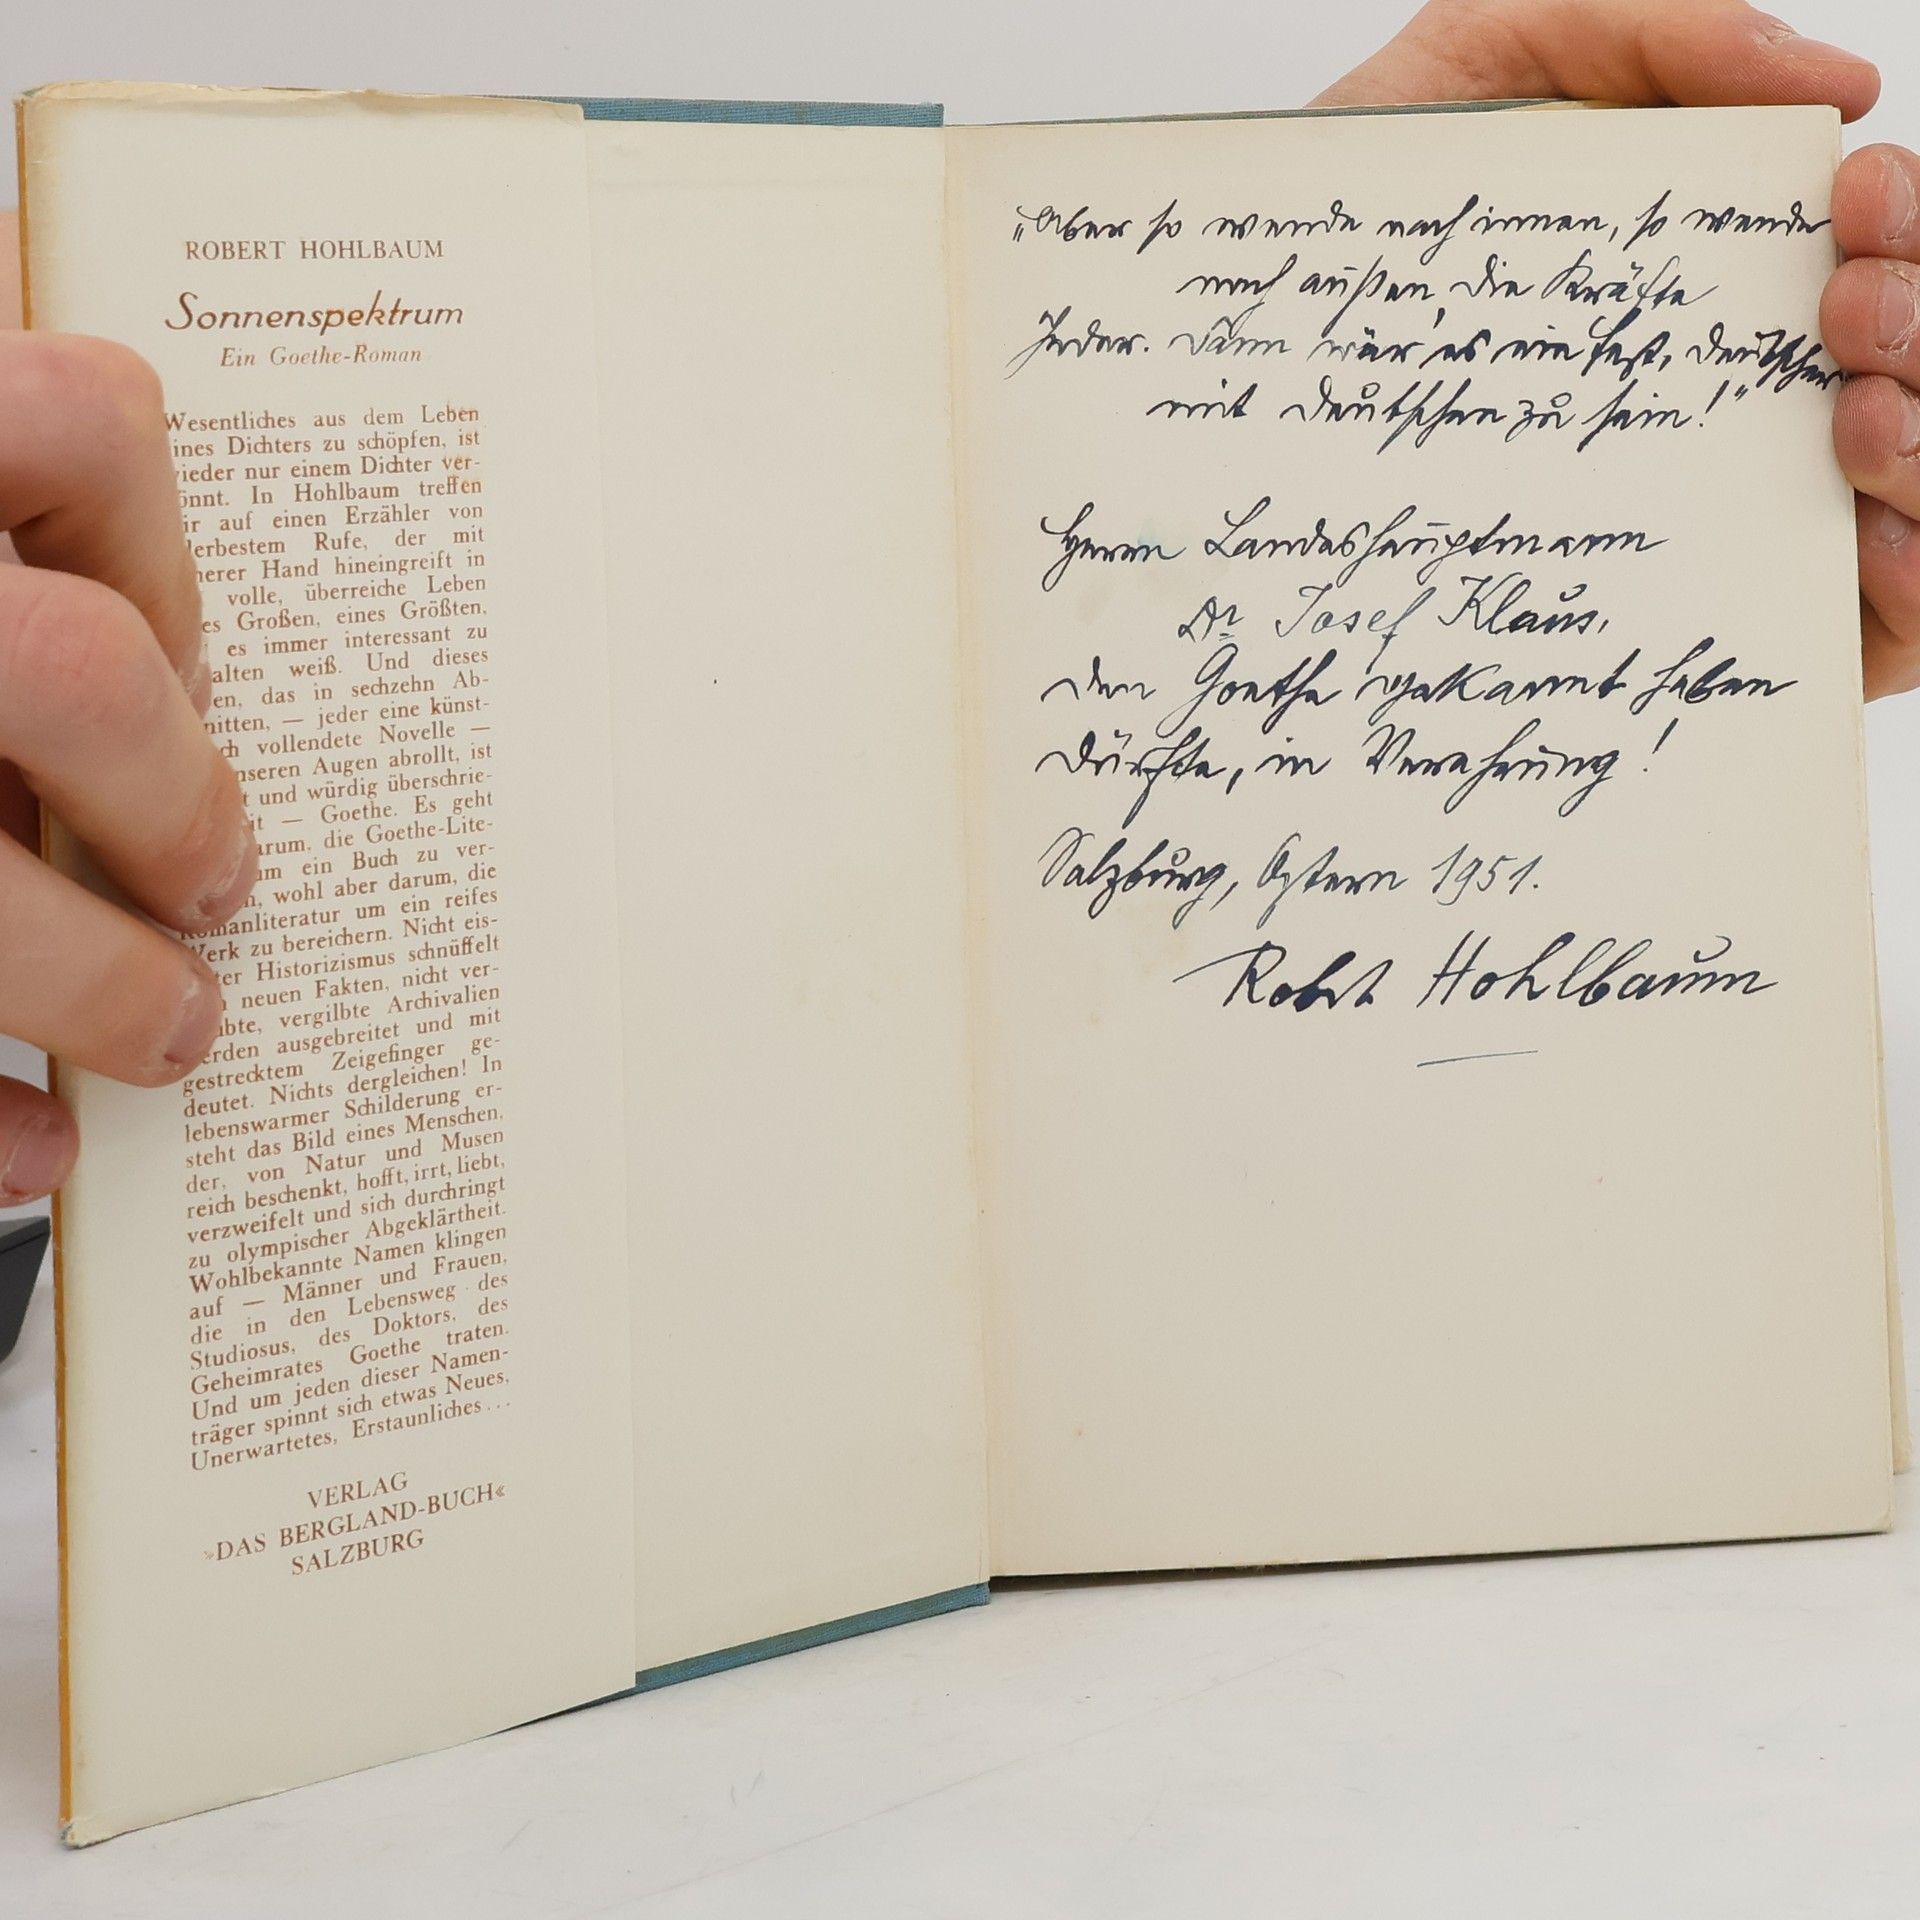 ROBERT HOHLBAUM
Sonnenspektrum
Ein Goethe-Roman
Wesentliches aus dem Leben
ines Dichters zu schöpfen, ist
ieder nur einem Dichter ver-
önnt. In Hohlbaum treffen
ir auf einen Erzähler von
lerbestem Rufe, der mit
herer Hand hineingreift in
volle, überreiche Leben
es Großen, eines Größten,
es immer interessant zu
alten weiß. Und dieses
en, das in sechzehn Ab-
nitten, — jeder eine künst-
ch vollendete Novelle —
nseren Augen abrollt, ist
t und würdig überschrie-
it — Goethe. Es geht
arum, die Goethe-Lite-
um ein Buch zu ver-
n, wohl aber darum, die
Romanliteratur um ein reifes
Werk zu bereichern. Nicht eis-
ter Historizismus schnüffelt
neuen Fakten, nicht ver-
ubte, vergilbte Archivalien
erden ausgebreitet und mit
gestrecktem Zeigefinger ge-
deutet. Nichts dergleichen! In
lebenswarmer Schilderung er-
steht das Bild eines Menschen,
der, von Natur und Musen
reich beschenkt, hofft, irrt, liebt,
verzweifelt und sich durchringt
zu olympischer Abgeklärtheit.
Wohlbekannte Namen klingen
auf — Männer und Frauen,
die in den Lebensweg des
Studiosus, des Doktors, des
Geheimrates Goethe traten.
Und um jeden dieser Namen-
träger spinnt sich etwas Neues,
Unerwartetes, Erstaunliches...
VERLAG
»DAS BERGLAND-BUCH«
SALZBURG
„Aber so wende nach innen, so wende
nach außen die Kräfte
Jeder. Dann wär es ein Fest, Deutscher
mit Deutschen zu sein!"
Herrn Landeshauptmann
Dr Josef Klaus,
den Goethe gekannt haben
dürfte, in Verehrung!
Salzburg, Ostern 1951.
Robert Hohlbaum